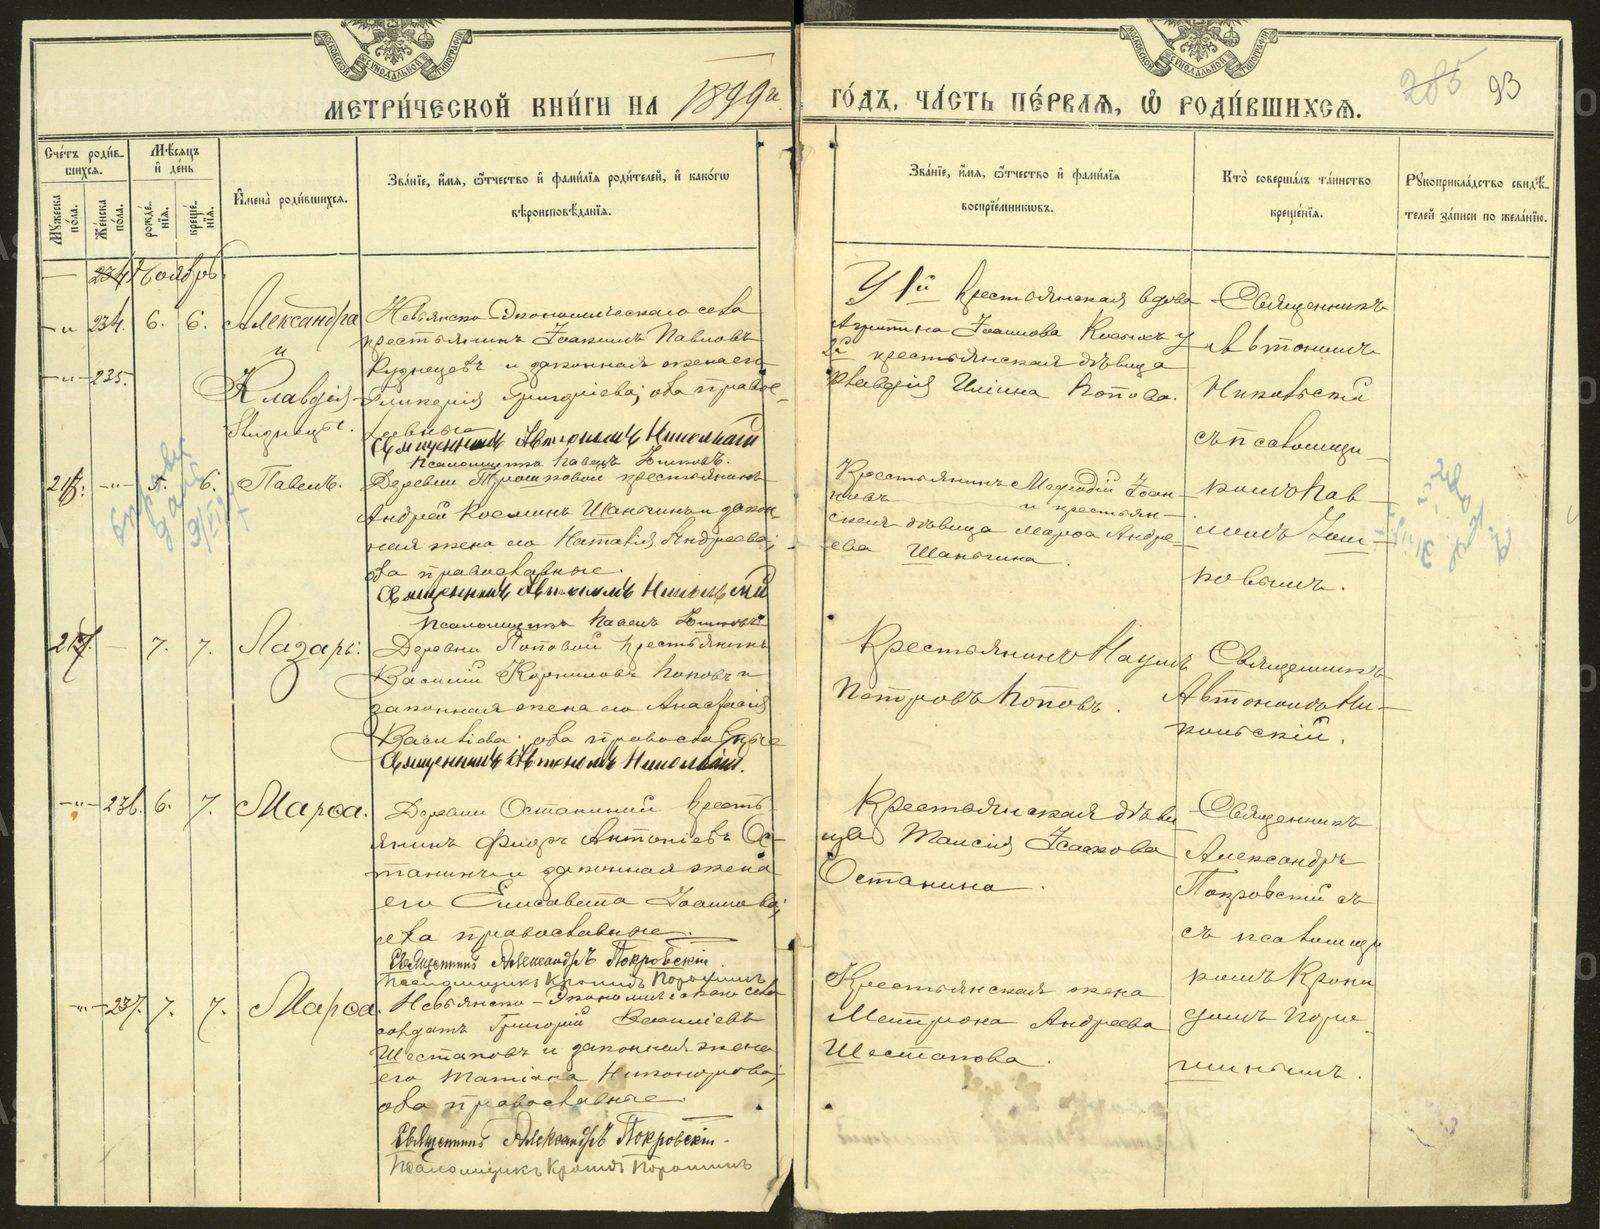 МОСКОВСКОЙ СѴНОДАЛЬНОЙ ТИПОГРАФІИ
МОСКОВСКОЙ СѴНОДАЛЬНОЙ ТИПОГРАФІИ
МЕТРИ́ЧЕСКОЙ КНИ́ГИ НА 1899й
ГО́ДЪ, ЧА́СТЬ ПЕ́РВАѦ, Ѡ҆ РОДИ́ВШИХСѦ.
285 93
Сче́тъ роди́в-
шихся.
Мѣ́сяцъ
и҆ де́нь
Му́жеска по́ла.
Же́нска по́ла.
рожде́-
нїя.
креще́-
нїя.
И҆мена̀ роди́вшихся.
Зва́нїе, и҆́мя, ѻ҆́тчество и҆ фами́лїя роди́телей, и҆ како́гѡ
вѣроисповѣ́данїя.
Зва́нїе, и҆́мя, ѻ҆́тчество и҆ фами́лїя
воспрїе́мниковъ.
Кто̀ соверша́лъ та́инство
креще́нїя.
Рꙋкоприкла́дство свидѣ́-
телей за́писи по жела́нїю.
234 Ноябрь
234. 6. 6. Александра
и
235. Клавдія
близнецы.
Невьянско Экономическаго села
крестьянинъ Іоакимъ Павловъ
Кузнецовъ и законная жена его
Гликерія Григоріева; оба правос-
лавные
Священникъ Автономъ Никольскій
Псаломщикъ Павелъ
У 1й крестьянская вдова
Іоаннова
2й крестьянская дѣвица
Клавдія Иліина Попова.
Священникъ
Автономъ
Никольскій
съ псаломщи-
комъ Пав-
ломъ
ковымъ.
5. 6. Павелъ.
Деревни крестьянинъ
Андрей Косминъ Шаньгинъ и закон-
ная жена его Наталія Андреева;
оба православные.
Священникъ Автономъ Никольскій
Псаломщикъ Павелъ
Крестьянинъ Меѳодій Іоан-
новъ и крестьян-
ская дѣвица Марѳа Андре-
ева Шаньгина.
7. 7. Лазарь.
Деревни Поповой крестьянинъ
Василій Корниловъ Поповъ и
законная жена его Анастасія
Василіева; оба православные
Священникъ Автономъ Никольскій.
Крестьянинъ Наумъ
Петровъ Поповъ.
Священникъ
Автономъ Ни-
кольскій.
236. 6. 7. Марѳа.
Деревни Останиной кресть-
янинъ Флоръ Антоніевъ Ос-
танинъ и законная жена
его Елисавета Іоаннова;
оба православные.
Священникъ Александръ Покровскій
Псаломщикъ Кронидъ Порошинъ
Крестьянская дѣви
ца Таисія Исаакова
Останина.
Священникъ
Александръ
Покровскій съ
съ псаломщи
комъ Крони
домъ Поро-
шинымъ.
237. 7. 7. Марѳа.
Невьянско-Экономическаго села
солдатъ Григорій Василіевъ
Шестаковъ и законная жена
его Татіана Никонорова;
оба православные.
Священникъ Александръ Покровскій.
Псаломщикъ Кронидъ Порошинъ
Крестьянская жена
Матрона Андреева
Шестакова.